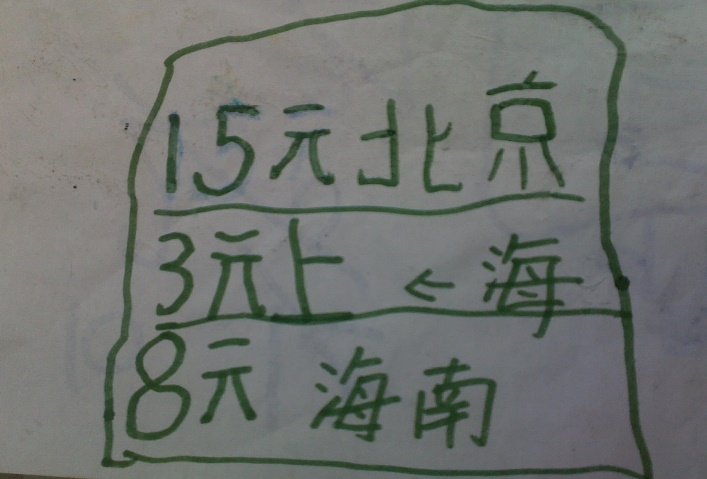 15元北京
3元上←海
8元海南